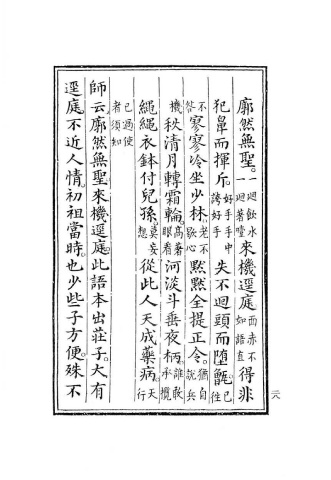 廓然無聖。一迴飲水一迴著噎來機逕庭。面赤不如語直得非
犯鼻而揮斤。好手手中誇好手失不迴頭而墮甑。已往
不咎寥寥冷坐少林。老不歇心默默全提正令。猶自說兵
機秋清月轉霜輪。高著眼看河淡斗垂夜柄。誰敢承攬
繩繩衣鉢付兒孫。莫妄想從此人天成藥病。天行
已過使者須知
師云。廓然無聖。來機逕庭。此語本出莊子。大有
逕庭不近人情。初祖當時。也少些子方便。殊不